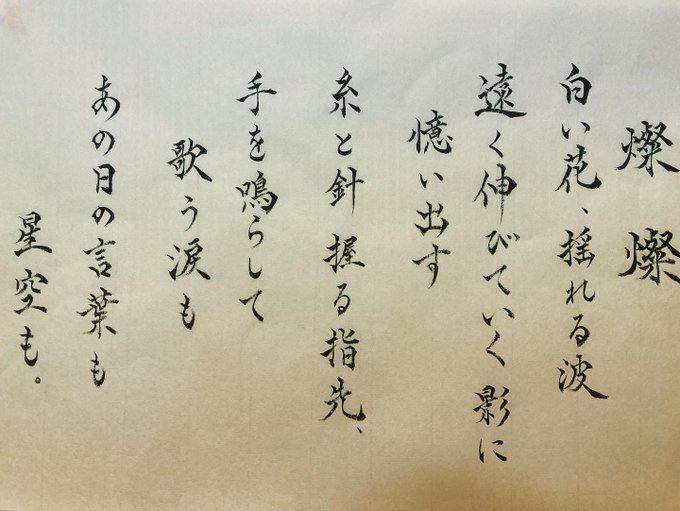 燦燦
白い花、揺れる波
遠く伸びていく影に
憶い出す
糸と針握る指先、
手を鳴らして
歌う涙も
あの日の言葉も
星空も。